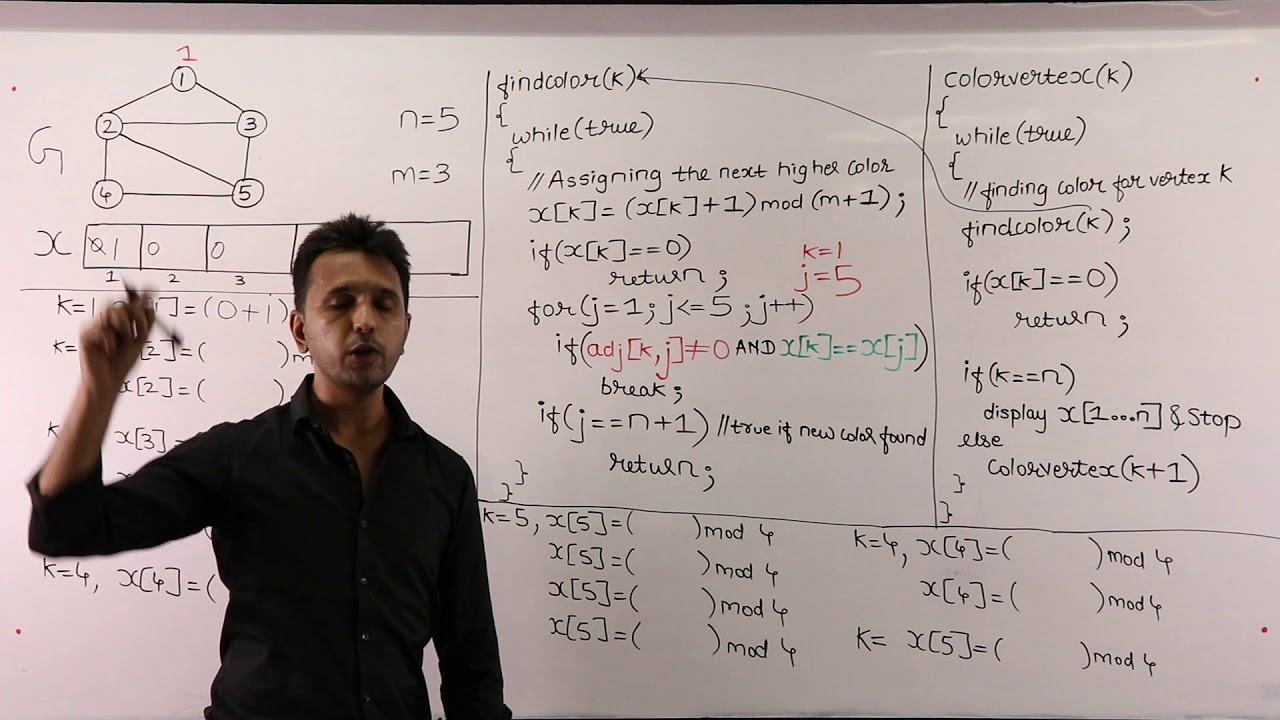 1
1
2
3
4
5
G
n=5
m=3
x
0 1
0
0
1
2
3
k=1, x[1]=(0+1)
k= x[2]=( )m
x[2]=(
k x[3]=
k=4, x[4]=(
findcolor(k)
{
while(true)
{
//Assigning the next higher color
x[k]=(x[k]+1)mod(m+1);
if(x[k]==0)
return;
k=1
j=5
for(j=1; j<=5; j++)
if(adj[k,j]≠0 AND x[k]==x[j])
break;
if(j==n+1) //true if new color found
return;
}
}
colorvertex(k)
{
while(true)
{
//finding color for vertex k
findcolor(k);
if(x[k]==0)
return;
if(k==n)
display x[1...n] & Stop
else
colorvertex(k+1)
}
}
k=5, x[5]=( )mod 4
x[5]=( )mod 4
x[5]=( )mod 4
x[5]=( )mod 4
k=4, x[4]=( )mod 4
x[4]=( )mod 4
k= x[5]=( )mod 4